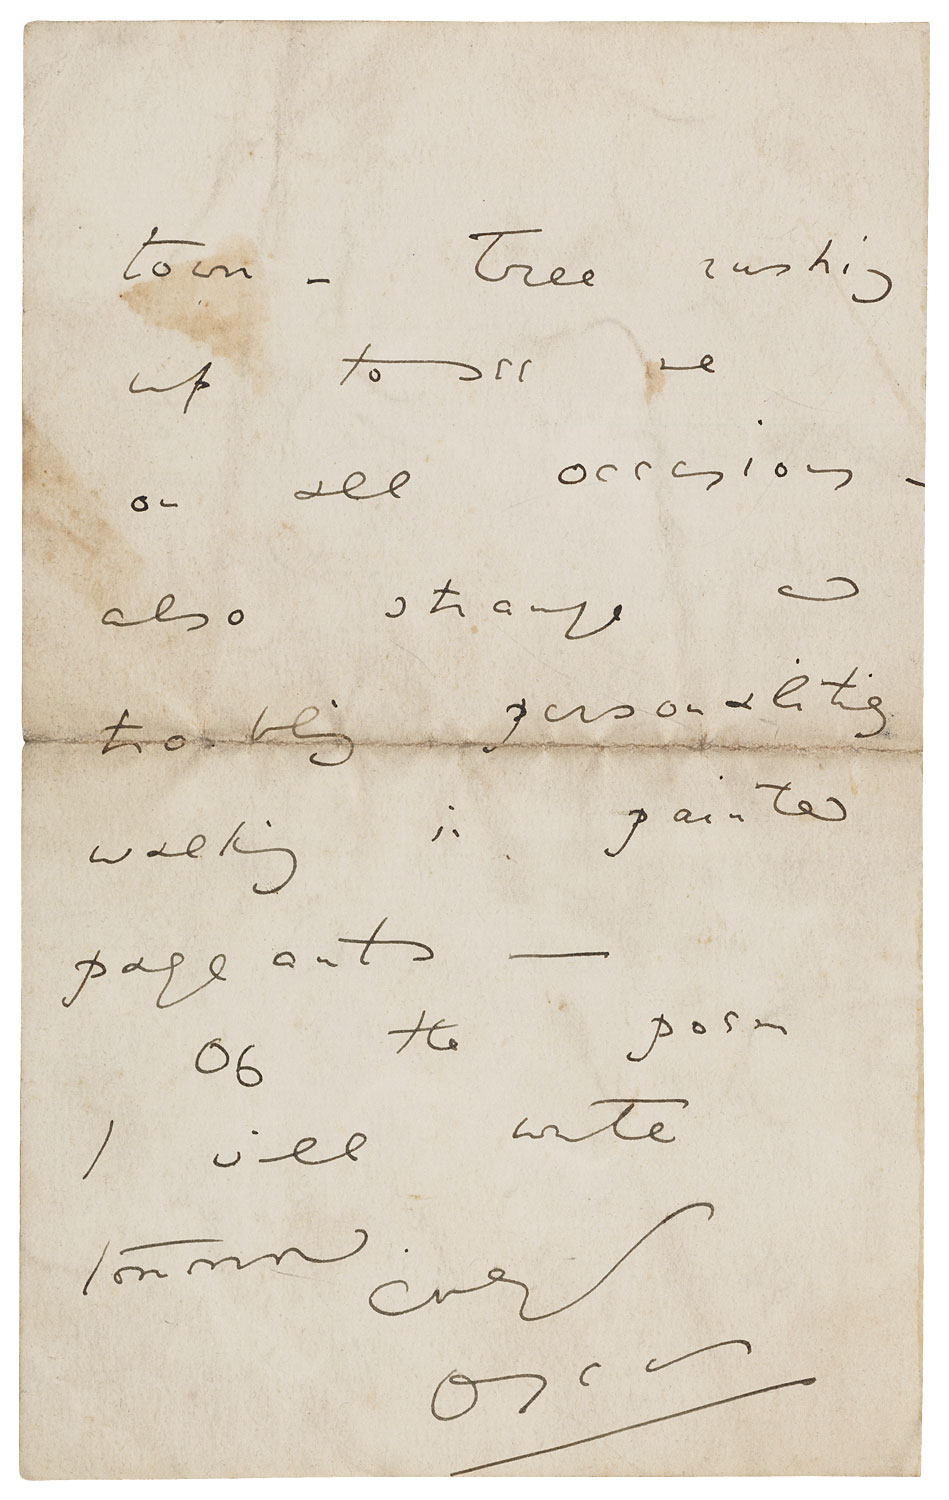 town - Tree rushing
up to see me
on all occasions -
also strange and
troubling personalities
walking in painted
pageants —
Of the poem
I will write
tomorrow.
Ever
Oscar